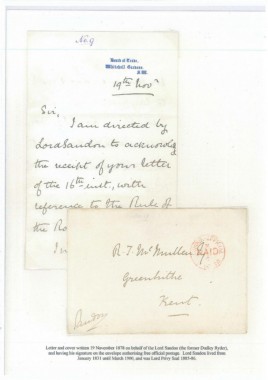 No 9
Board of Trade,
Whitehall Gardens
S.W.
19th Novr
Sir,
I am directed by
Lord Sandon to acknowledge
the receipt of your letter
of the 16th inst, with
reference to the Rule of
the Ro
R. T. McMullen Esq
Greenhithe
Kent
PAID
Sandon
Letter and cover written 19 November 1878 on behalf of the Lord Sandon (the former Dudley Ryder),
and having his signature on the envelope authorising free official postage. Lord Sandon lived from
January 1831 until March 1900, and was Lord Privy Seal 1885-86.